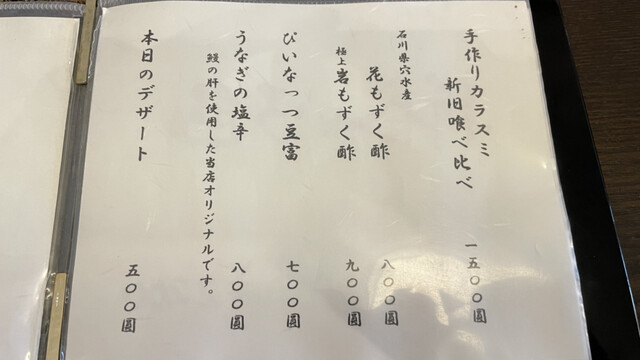 手作りカラスミ
新旧喰べ比べ
一五〇〇圓
石川県穴水産
花もずく酢
八〇〇圓
極上岩もずく酢
九〇〇圓
ぴいなっつ豆富
七〇〇圓
うなぎの塩辛
八〇〇圓
鰻の肝を使用した当店オリジナルです。
本日のデザート
五〇〇圓